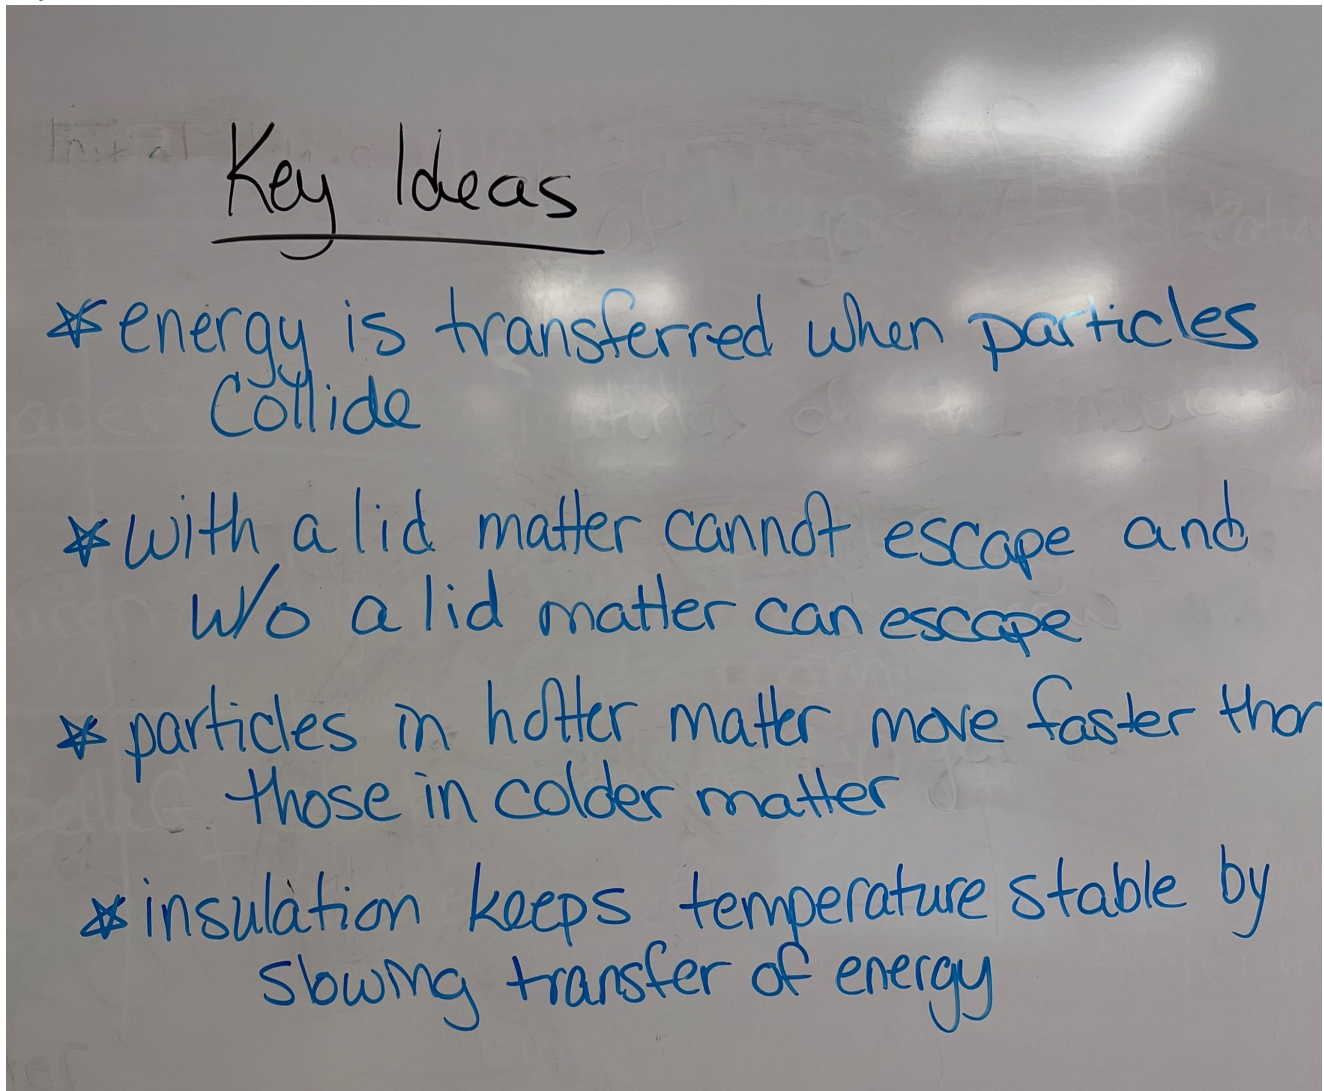 Key Ideas
☆ energy is transferred when particles
collide
☆ with a lid matter cannot escape and
w/o a lid matter can escape
☆ particles in hotter matter move faster than
those in colder matter
☆ insulation keeps temperature stable by
slowing transfer of energy